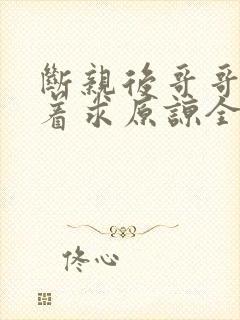 斷親後哥哥
着求原諒全
佟心